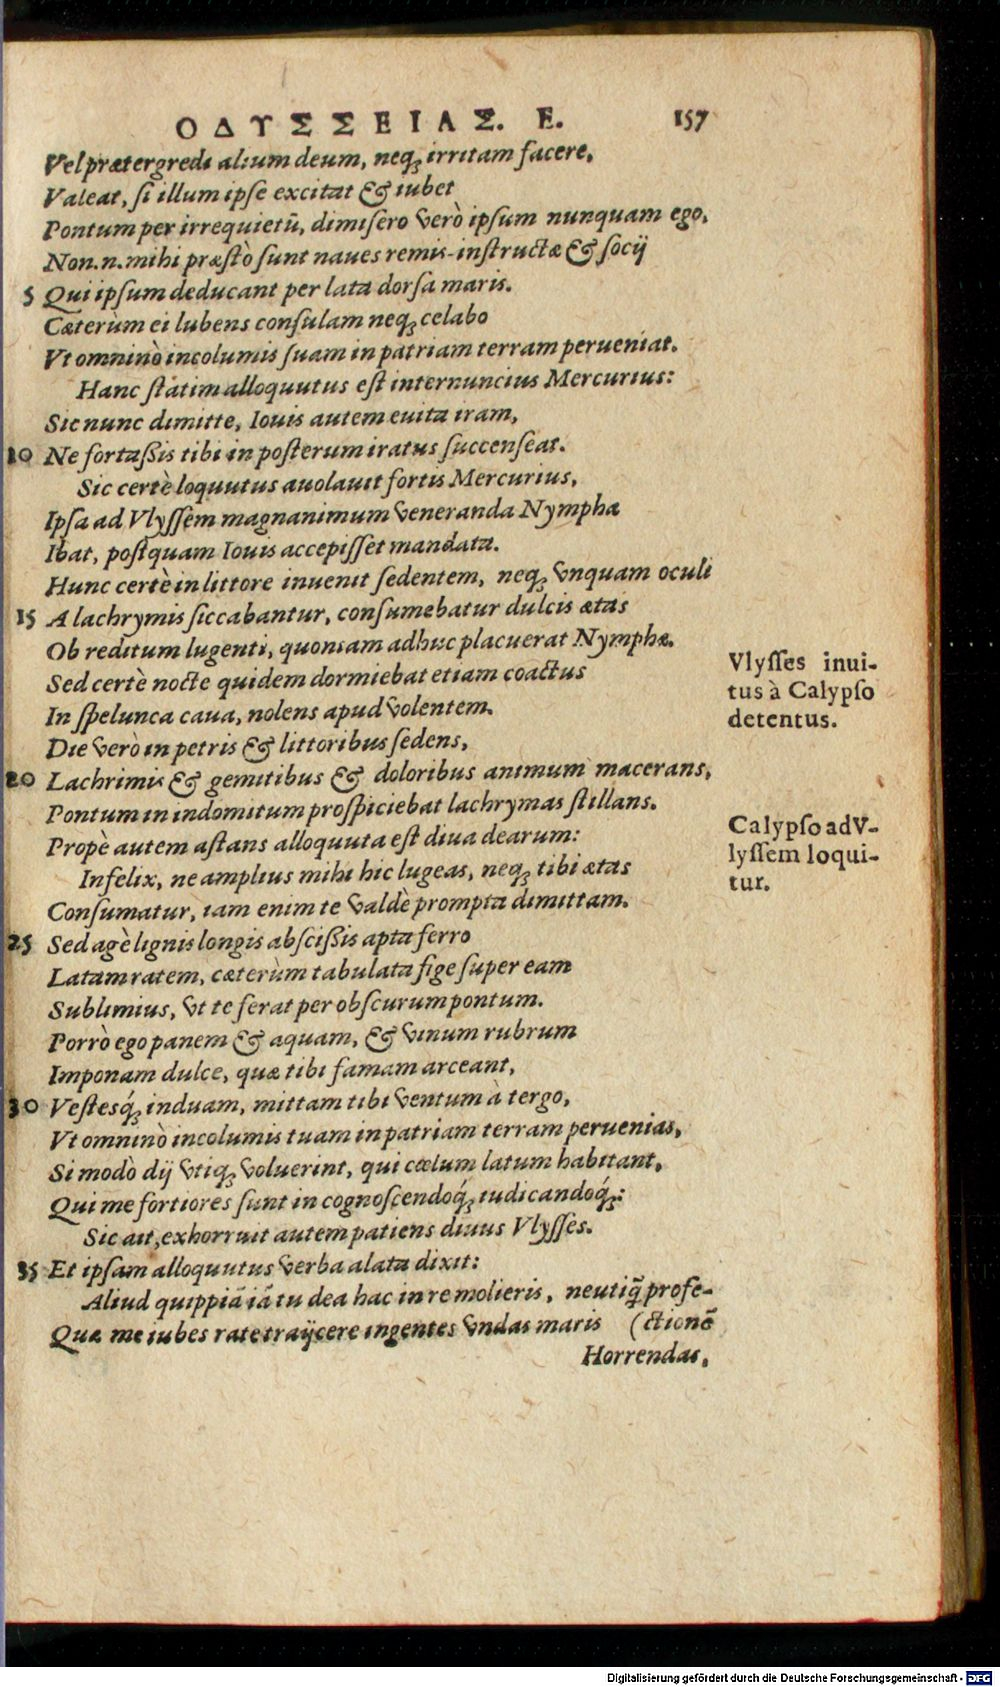 ΟΔΥΣΣΕΙΑΣ. Ε. 157
Vel prætergredi alium deum, neq́; irritam facere,
Valeat, si illum ipse excitat & iubet
Pontum per irrequietū, dimisero verò ipsum nunquam ego,
Non.n.mihi præstò sunt naues remis-instructæ & socij
5 Qui ipsum deducant per lata dorsa maris.
Cæterùm ei lubens consulam neq; celabo
Vt omninò incolumis suam in patriam terram perueniat.
Hanc statim alloquutus est internuncius Mercurius:
Sic nunc dimitte, Iouis autem euita iram,
10 Ne fortaßis tibi in posterum iratus succenseat.
Sic certè loquutus auolauit fortis Mercurius,
Ipsa ad Vlyssem magnanimum veneranda Nympha
Ibat, postquam Iouis accepisset mandata.
Hunc certè in littore inuenit sedentem, neq; vnquam oculi
15 A lachrymis siccabantur, consumebatur dulcis ætas
Ob reditum lugenti, quoniam adhuc placuerat Nymphæ.
Sed certè nocte quidem dormiebat etiam coactus
In spelunca caua, nolens apud volentem.
Die verò in petris & littoribus sedens,
20 Lachrimis & gemitibus & doloribus animum macerans,
Pontum in indomitum prospiciebat lachrymas stillans.
Propè autem astans alloquuta est diua dearum:
Infelix, ne amplius mihi hic lugeas, neq; tibi ætas
Consumatur, iam enim te valdè prompta dimittam.
25 Sed agè lignis longis abscißis apta ferro
Latam ratem, cæterùm tabulata fige super eam
Sublimius, vt te ferat per obscurum pontum.
Porrò ego panem & aquam, & vinum rubrum
Imponam dulce, quæ tibi famam arceant,
30 Vestesq́; induam, mittam tibi ventum à tergo,
Vt omninò incolumis tuam in patriam terram peruenias,
Si modò dij vtiq; voluerint, qui cœlum latum habitant,
Qui me fortiores sunt in cognoscendoq́; iudicandoq́;:
Sic ait, exhorruit autem patiens diuus Vlysses.
35 Et ipsam alloquutus verba alata dixit:
Aliud quippiā iā tu dea hac in re molieris, neutiq̃ profe-
Quæ me iubes rate traijcere ingentes vndas maris (ctionē
Horrendas,
Vlysses inui-
tus à Calypso
detentus.
Calypso ad V-
lyssem loqui-
tur.
Digitalisierung gefördert durch die Deutsche Forschungsgemeinschaft - DFG